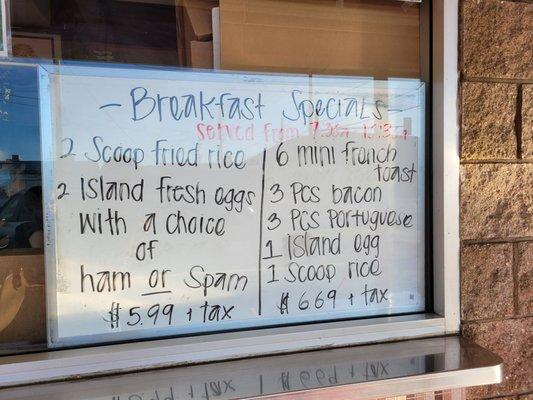 - Breakfast Specials -
served from
2 Scoop fried rice
2 Island fresh eggs
with a choice
of
ham or Spam
$5.99 + tax
6 mini french
toast
3 Pcs bacon
3 Pcs Portuguese
1 Island egg
1 Scoop rice
$6.69 + tax